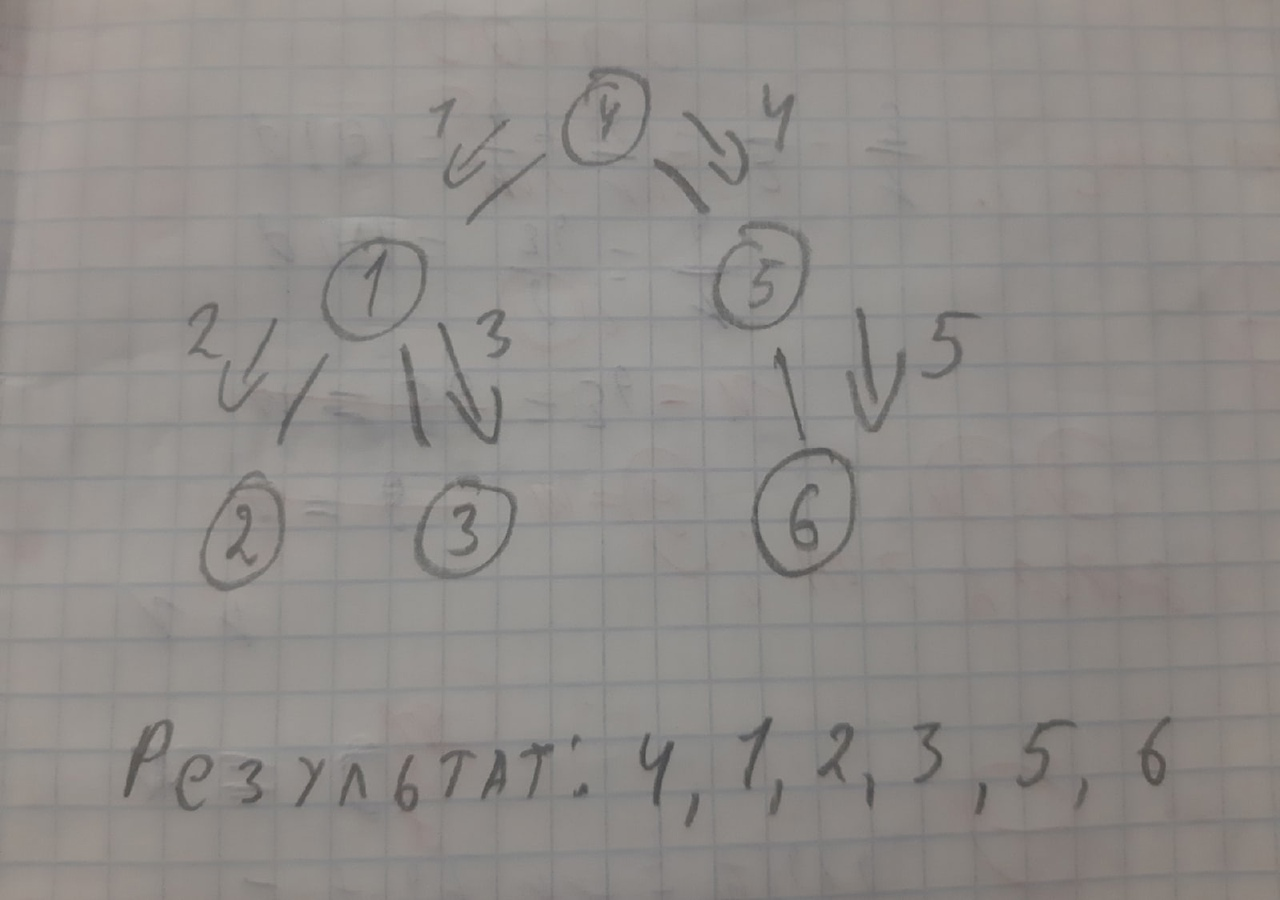 4
1 4
1 5
2 3 5
2 3 6
Результат: 4, 1, 2, 3, 5, 6